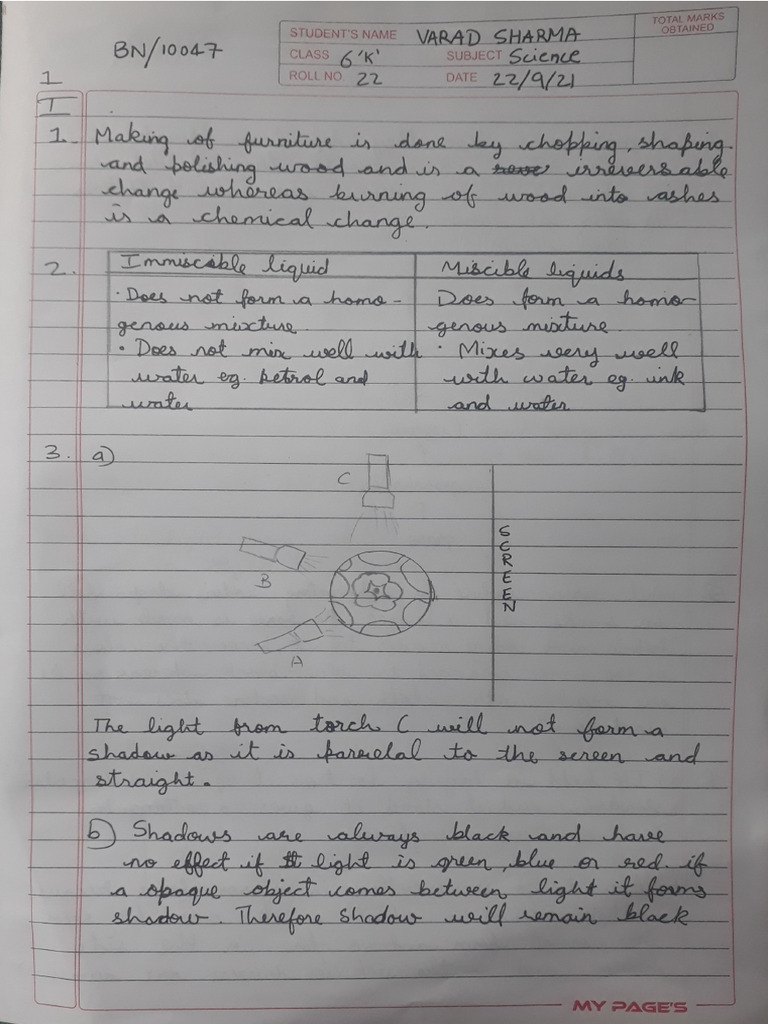 BN/10047
STUDENT'S NAME VARAD SHARMA
TOTAL MARKS OBTAINED
CLASS 6'K' SUBJECT Science
ROLL NO 22 DATE 22/9/21
1
I
1. Making of furniture is done by chopping, shaping
and polishing wood and is a irreversable
change whereas burning of wood into ashes
is a chemical change.
2. Immiscable liquid Miscible liquids
· Does not form a homo- Does form a homo-
genous mixture. genous mixture.
• Does not mix well with • Mixes very well
water eg. petrol and with water eg. ink
water and water
3. a)
C
SCREEN
B
A
The light from torch C will not form a
shadow as it is parrelal to the screen and
straight.
b) Shadows are always black and have
no effect if light is green, blue or red. if
a opaque object comes between light it forms
shadow. Therefore shadow will remain black
MY PAGE'S